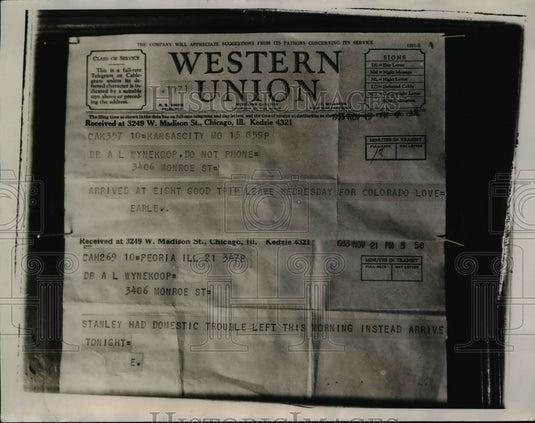 THE COMPANY WILL APPRECIATE SUGGESTIONS FROM ITS PATRONS CONCERNING ITS SERVICE
CLASS OF SERVICE
This is a full-rate
Telegram or Cable-
gram unless its de-
ferred character is
indicated by a suitable
sign above or preced-
ing the address.
WESTERN
UNION
SIGNS
DL = Day Letter
NM = Night Message
NL = Night Letter
LCO = Deferred Cable
Received at 3249 W. Madison St., Chicago, Ill. Kedzie 4321
CAK397 10=KANSASCITY MO 15 859P
DR A L WYNEKOOP, DO NOT PHONE=
3406 MONROE ST=
MINUTES IN TRANSIT
FULL-RATE DAY LETTER
ARRIVED AT EIGHT GOOD TRIP LEAVE WEDNESDAY FOR COLORADO LOVE=
EARLE..
Received at 3249 W. Madison St., Chicago, Ill. Kedzie 4321
1933 NOV 21 PM 3 58
CAH269 10=PEORIA ILL 21 347P
DR A L WYNEKOOP=
3406 MONROE ST=
MINUTES IN TRANSIT
FULL-RATE DAY LETTER
STANLEY HAD DOMESTIC TROUBLE LEFT THIS MORNING INSTEAD ARRIVE
TONIGHT=
E.
HISTORIC IMAGES